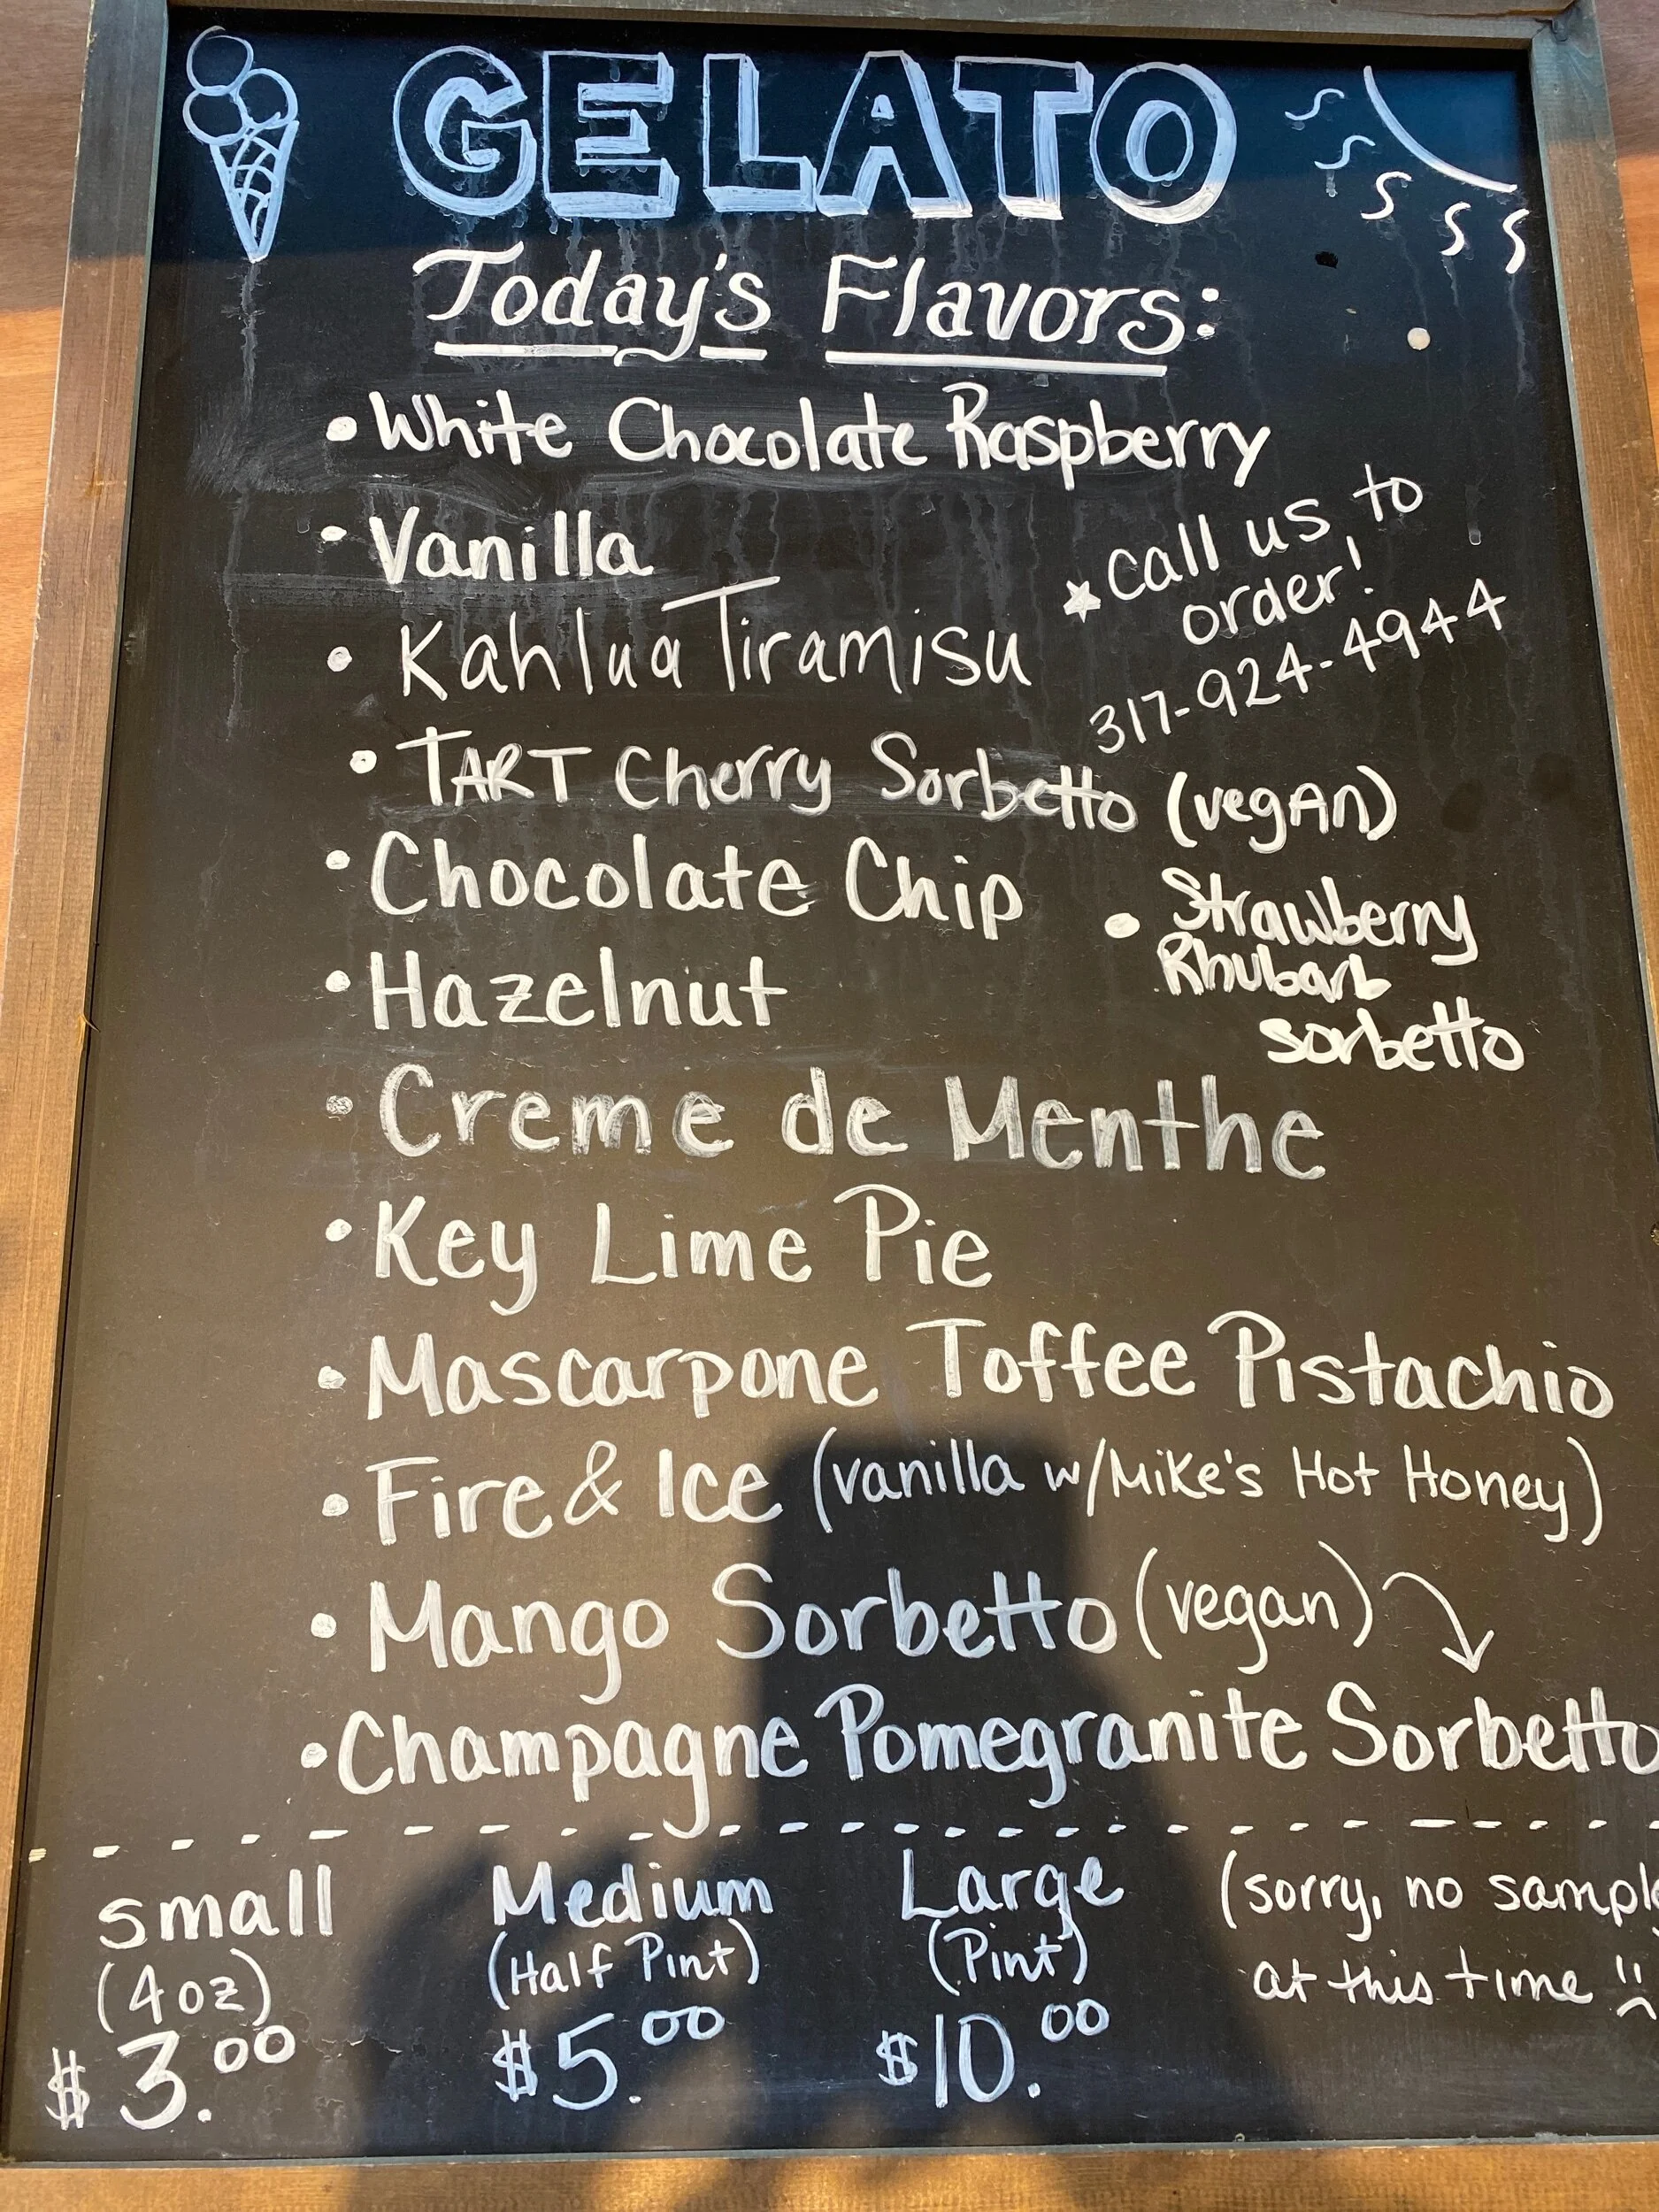 GELATO
Today's Flavors:
• White Chocolate Raspberry
• Vanilla
★ call us to
order!
317-924-4944
• Kahlua Tiramisu
• TART Cherry Sorbetto (vegAn)
• Chocolate Chip
• Strawberry
Rhubarb
sorbetto
• Hazelnut
• Creme de Menthe
• Key Lime Pie
• Mascarpone Toffee Pistachio
• Fire & Ice (vanilla w/Mike's Hot Honey)
• Mango Sorbetto (vegan)
• Champagne Pomegranite Sorbetto
small
(4oz)
$3.00
Medium
(Half Pint)
$5.00
Large
(Pint)
$10.00
(sorry, no sample
at this time